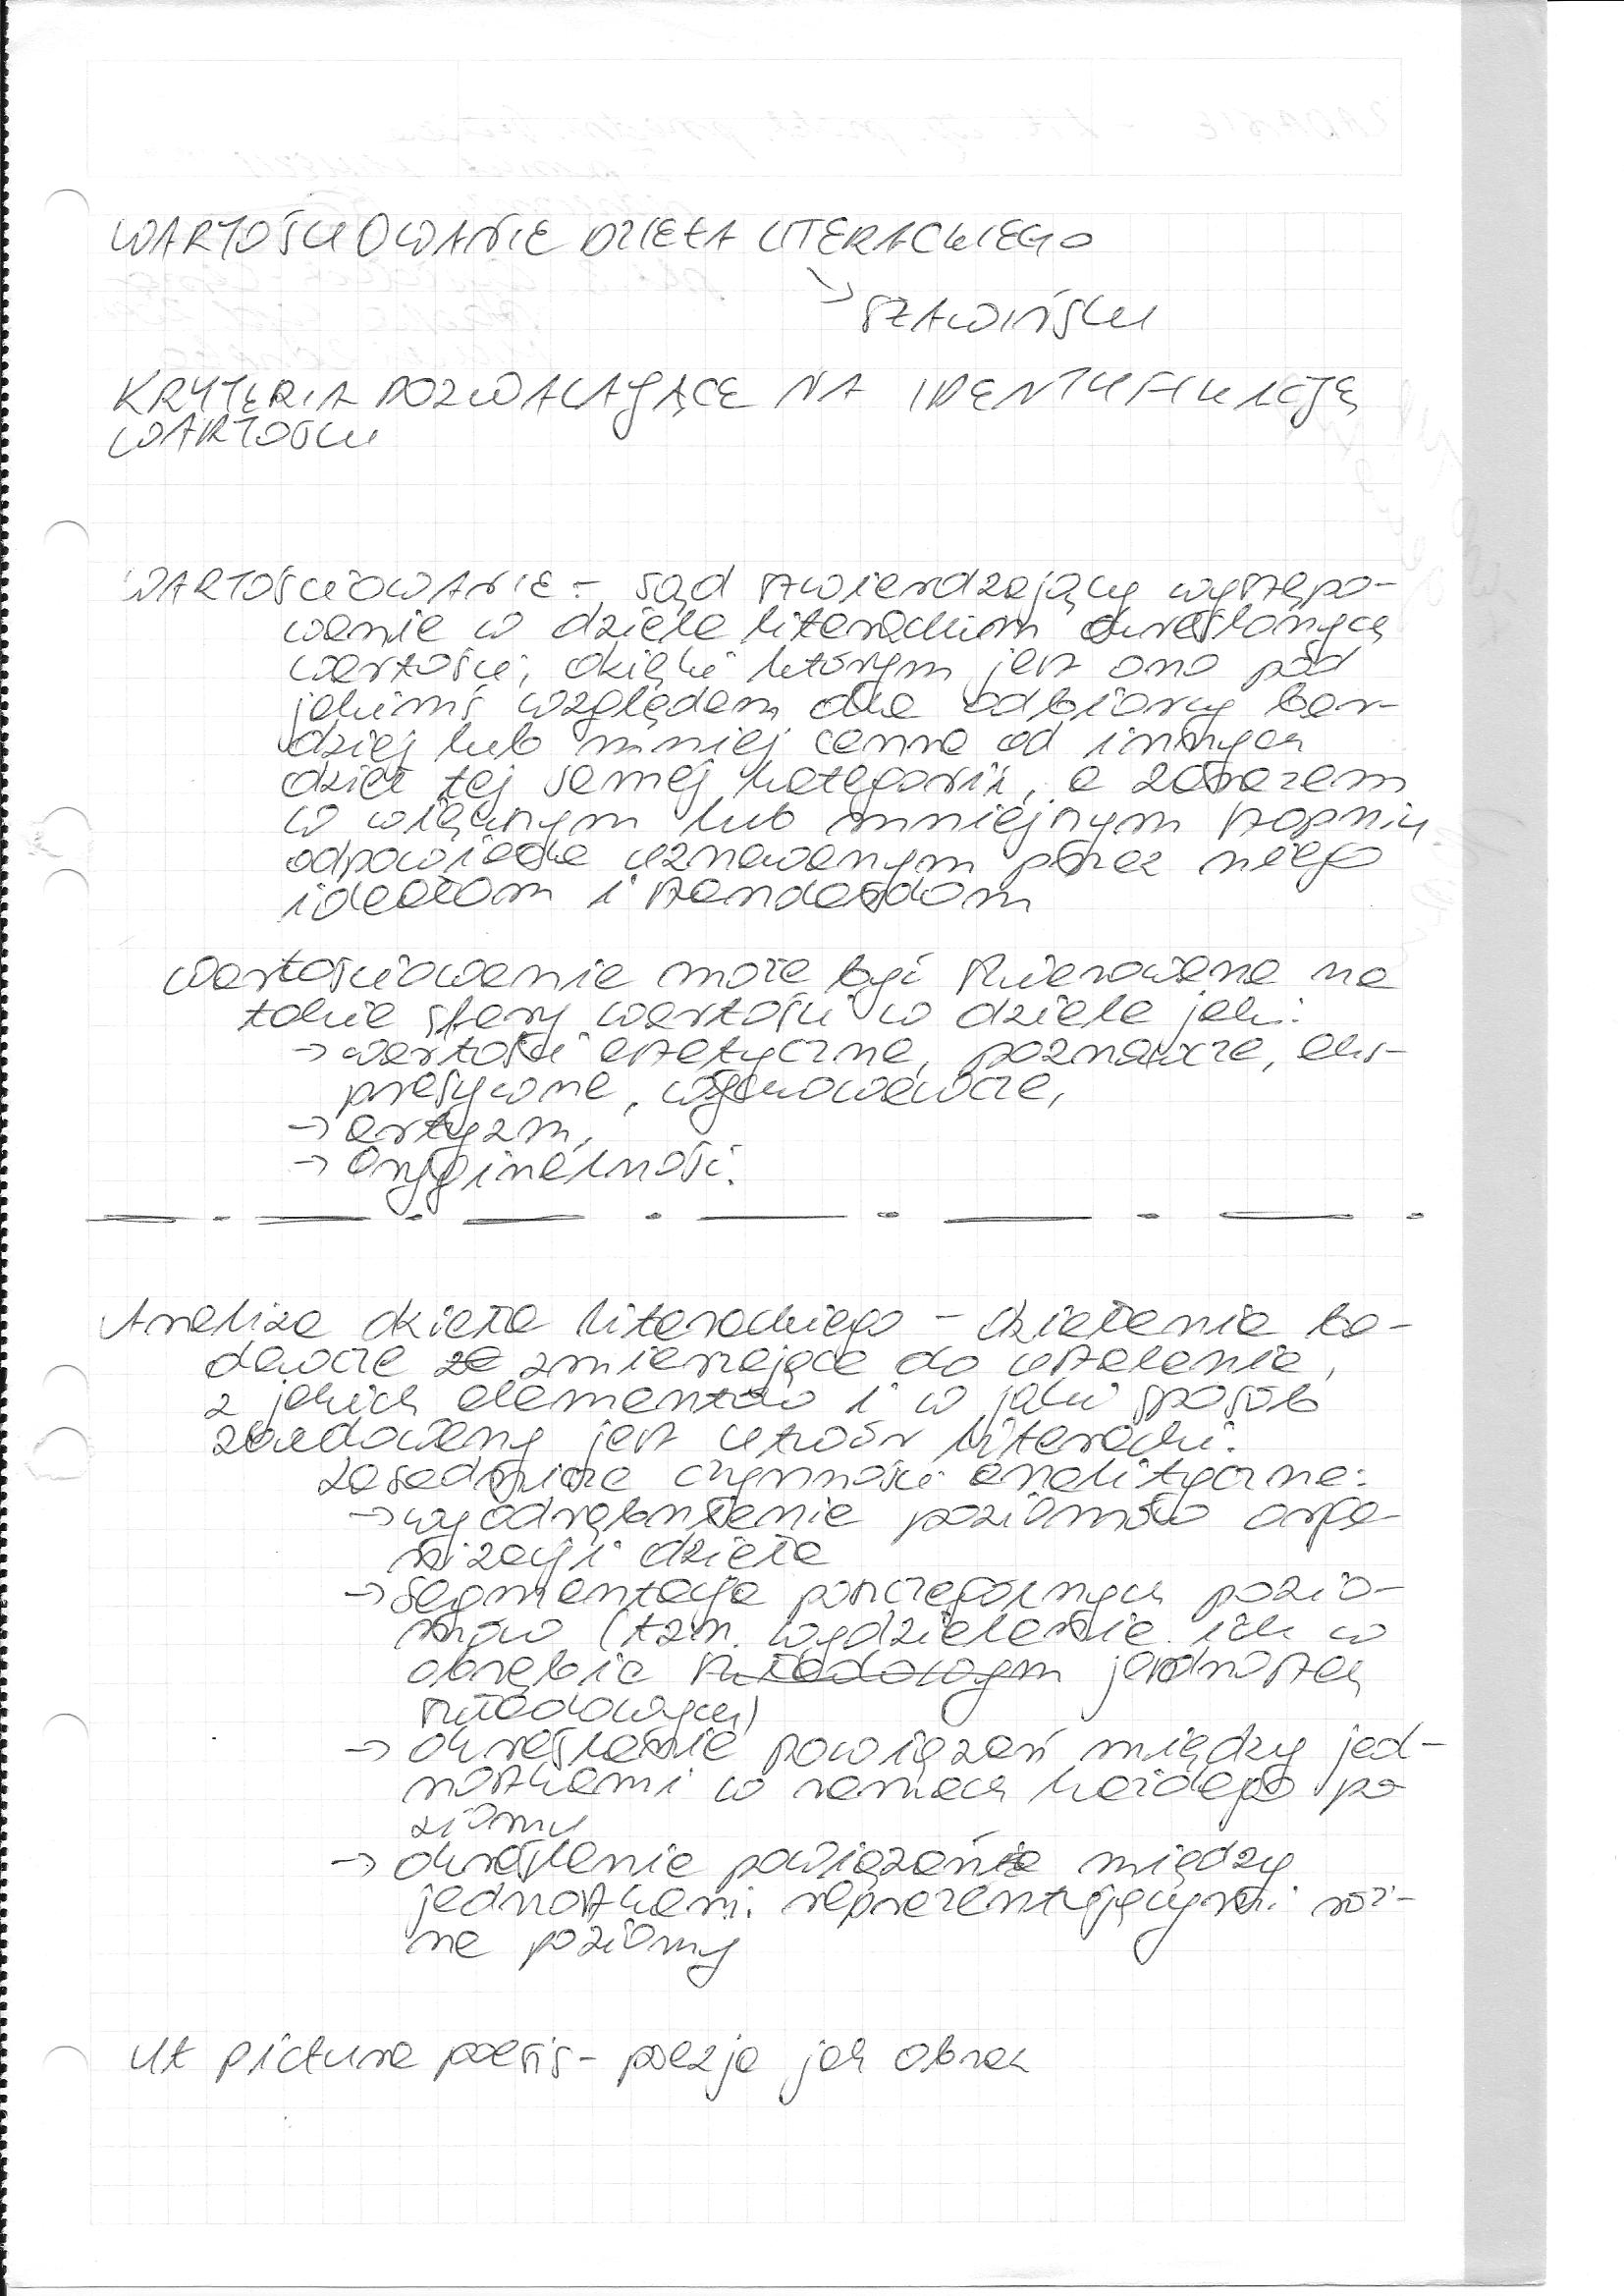 WARTOŚCIOWANIE DZIEŁA LITERACKIEGO
→ SŁAWIŃSKI
KRYTERIA POZWALAJĄCE NA IDENTYFIKACJĘ
WARTOŚCI
WARTOŚCIOWANIE - sąd stwierdzający występo-
wanie w dziele literackim określonych
wartości, dzięki którym jest ono pod
jakimś względem dla odbiorcy bar-
dziej lub mniej cenne od innych
dzieł tej samej kategorii, a zarazem
w większym lub mniejszym stopniu
odpowiada uznawanym przez niego
ideałom i standardom
wartościowanie może być skierowane na
takie sfery wartości w dziele jak:
→ wartości estetyczne, poznawcze, eks-
presywne, wychowawcze,
→ artyzm,
→ oryginalność.
Analiza dzieła literackiego - działanie ba-
dawcze zmierzające do ustalenia,
z jakich elementów i w jaki sposób
zbudowany jest utwór literacki.
zasadnicze czynności analityczne:
→ wyodrębnienie poziomów orga-
nizacji dzieła
→ segmentacja poszczególnych pozio-
mów (tzn. wydzielenie ich w
obrębie składowym jednostek
składowych)
→ określenie powiązań między jed-
nostkami w ramach każdego po
ziomu
→ określenie powiązań między
jednostkami reprezentującymi róż-
ne poziomy
Ut pictura poesis - poezja jak obraz